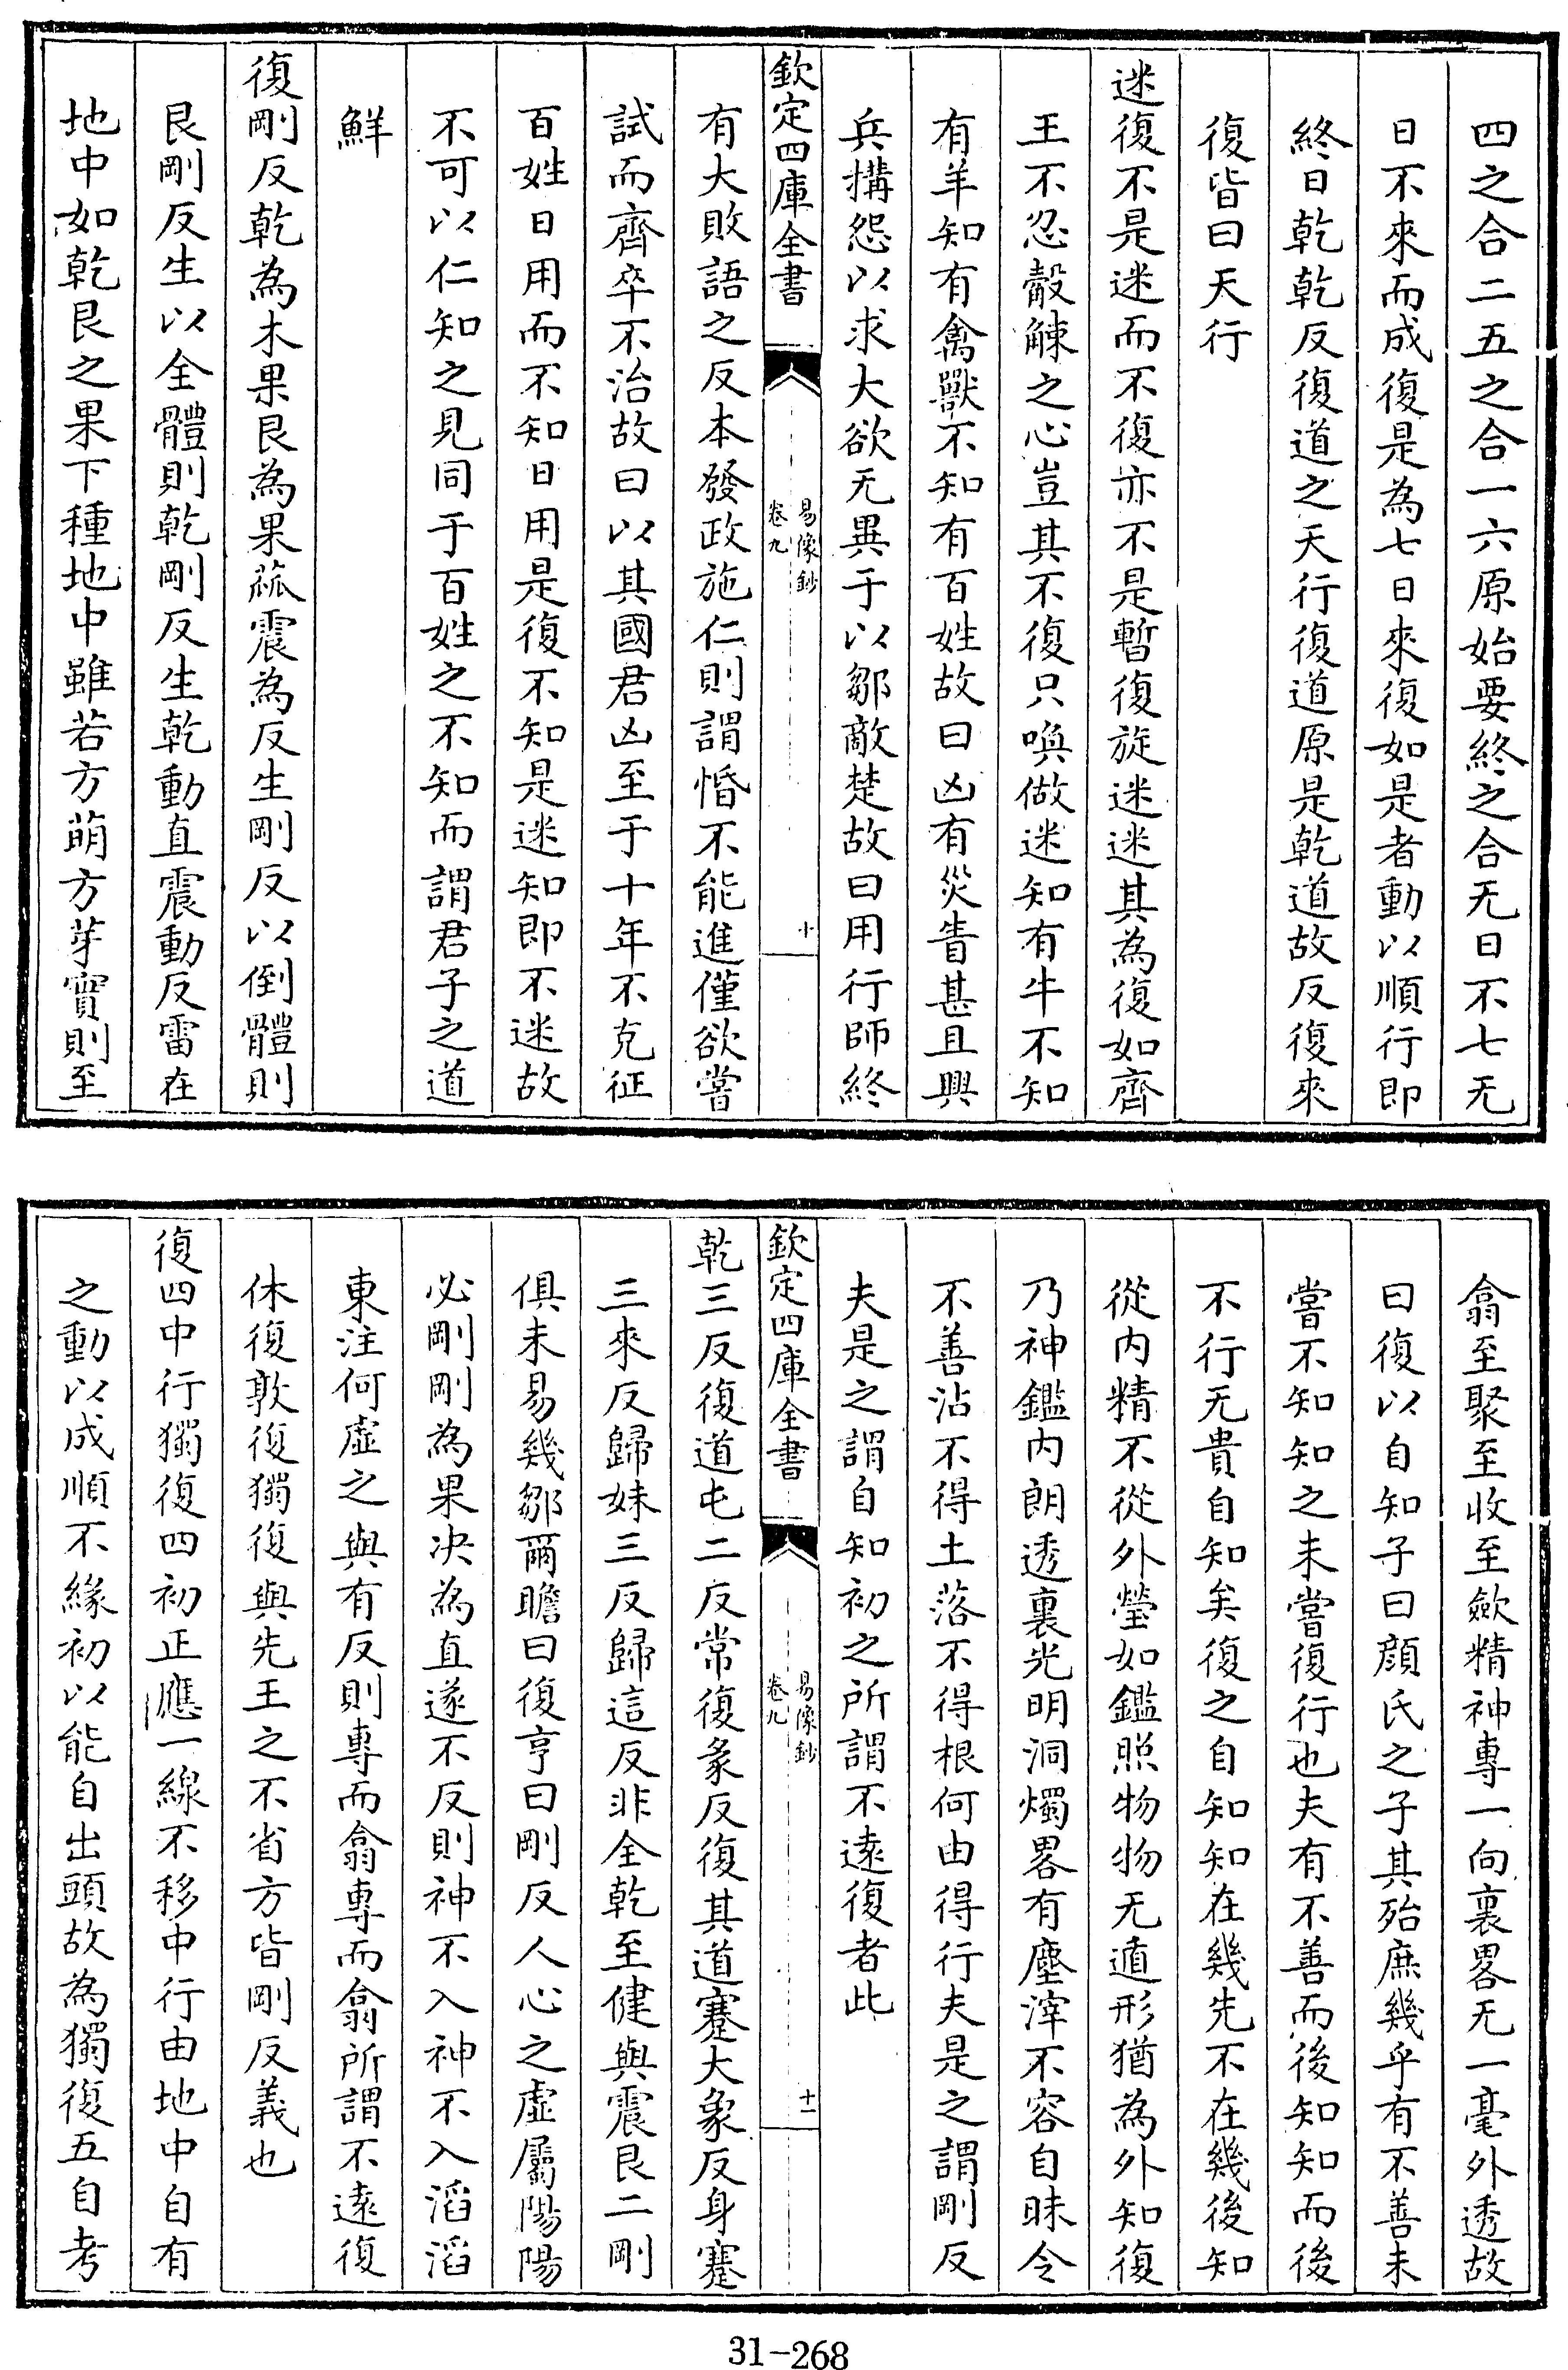 四之合二五之合一六原始要終之合无日不七无
日不來而成復是為七日來復如是者動以順行即
終日乾乾反復道之天行復道原是乾道故反復來
復皆曰天行
迷復不是迷而不復亦不是暫復旋迷迷其為復如齊
王不忍觳觫之心豈其不復只喚做迷知有牛不知
有羊知有禽獸不知有百姓故曰凶有災眚甚且興
兵搆怨以求大欲无異于以鄒敵楚故曰用行師終
欽定四庫全書
易像鈔
卷九
十
有大敗語之反本發政施仁則謂惛不能進僅欲嘗
試而齊卒不治故曰以其國君凶至于十年不克征
百姓日用而不知日用是復不知是迷知即不迷故
不可以仁知之見同于百姓之不知而謂君子之道
鮮
復剛反乾為木果艮為果蓏震為反生剛反以倒體則
艮剛反生以全體則乾剛反生乾動直震動反雷在
地中如乾艮之果下種地中雖若方萌方芽實則至
翕至聚至收至歛精神專一向裏畧无一毫外透故
曰復以自知子曰顔氏之子其殆庶幾乎有不善未
嘗不知知之未嘗復行也夫有不善而後知知而後
不行无貴自知矣復之自知知在幾先不在幾後知
從内精不從外瑩如鑑照物物无遁形猶為外知復
乃神鑑内朗透裏光明洞燭畧有塵滓不容自昧令
不善沾不得土落不得根何由得行夫是之謂剛反
夫是之謂自知初之所謂不遠復者此
欽定四庫全書
易像鈔
卷九
十一
乾三反復道屯二反常復彖反復其道蹇大象反身蹇
三來反歸妹三反歸這反非全乾至健與震艮二剛
俱未易幾鄒爾瞻曰復亨曰剛反人心之虛屬陽陽
必剛剛為果决為直遂不反則神不入神不入滔滔
東注何虛之與有反則專而翕專而翕所謂不遠復
休復敦復獨復與先王之不省方皆剛反義也
復四中行獨復四初正應一線不移中行由地中自有
之動以成順不緣初以能自出頭故為獨復五自考
31-268